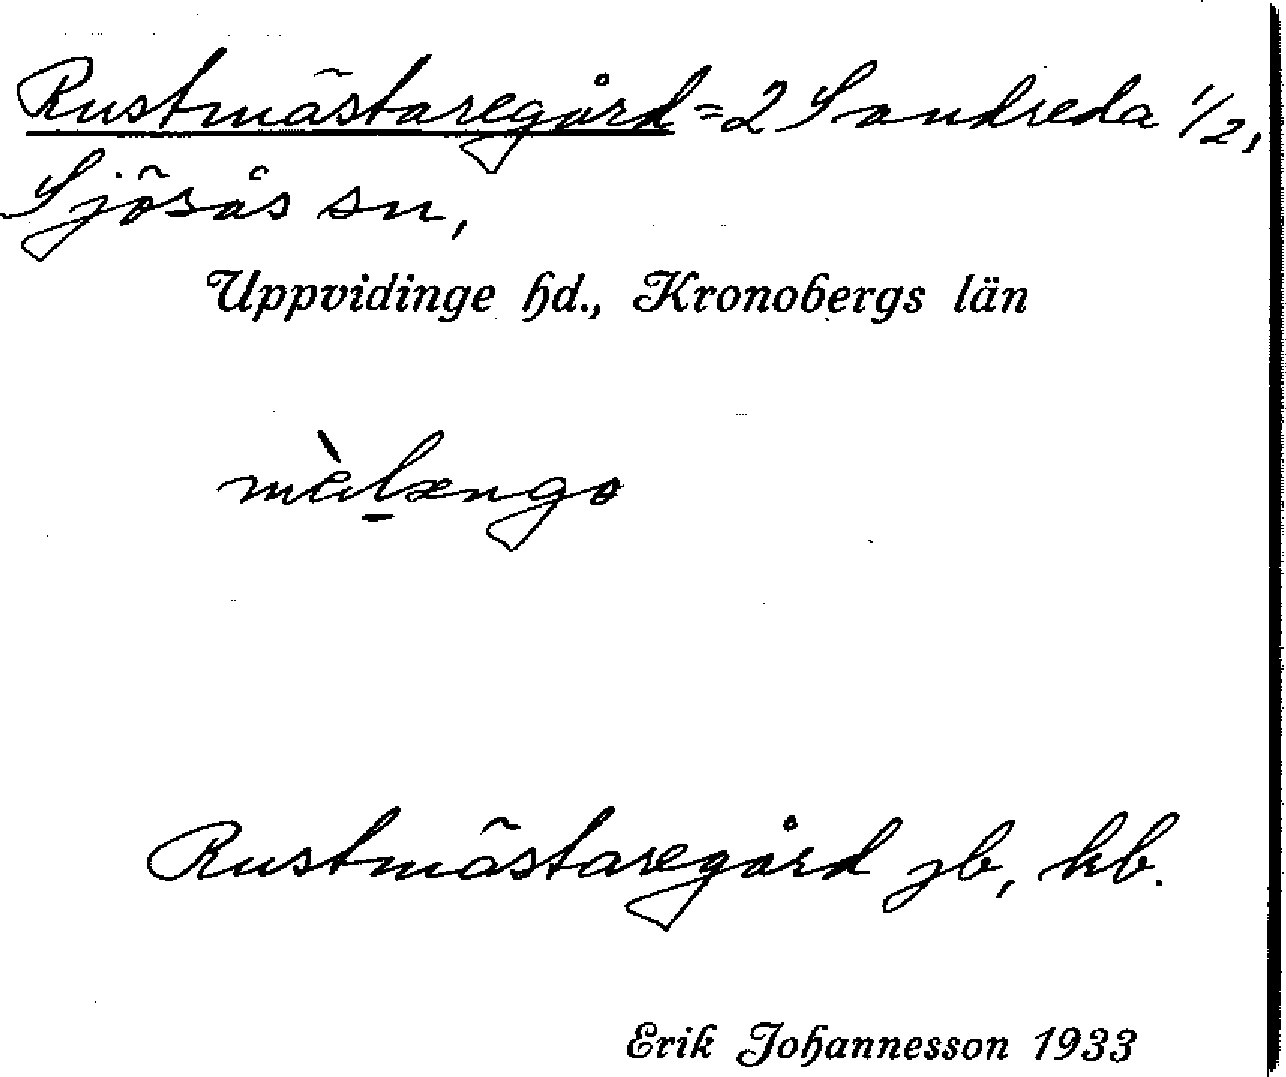 Rustmästaregård = 2 Sandreda 1/2,
Sjösås sn,
Uppvidinge hd., Kronobergs län
Rustmästaregård jb, kb.
Erik Johannesson 1933